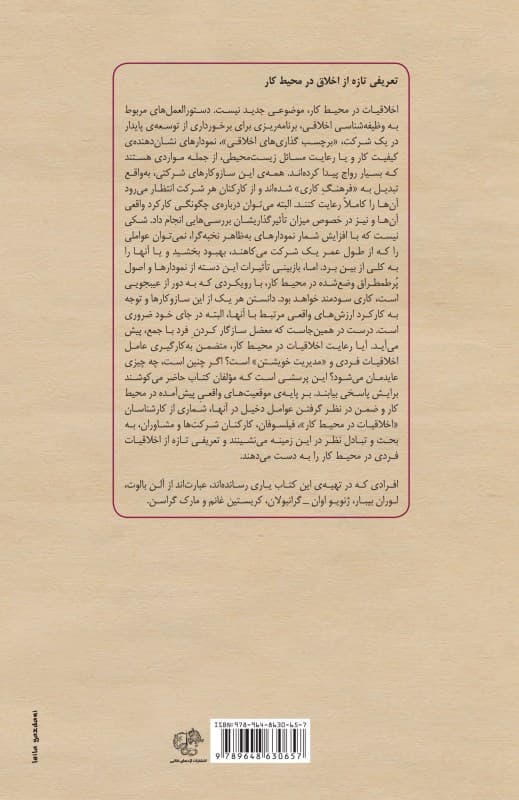 تعریفی تازه از اخلاق در محیط کار
اخلاقیات در محیط کار، موضوعی جدید نیست. دستورالعمل‌های مربوط
به وظیفه‌شناسی اخلاقی، برنامه‌ریزی برای برخورداری از توسعه‌ی پایدار
در یک شرکت، «برچسب گذاری‌های اخلاقی»، نمودارهای نشان‌دهنده‌ی
کیفیت کار و یا رعایت مسائل زیست‌محیطی، از جمله مواردی هستند
که بسیار رواج پیدا کرده‌اند. همه‌ی این سازوکارهای شرکتی، به‌واقع
تبدیل به «فرهنگِ کاری» شده‌اند و از کارکنان هر شرکت انتظار می‌رود
آن‌ها را کاملاً رعایت کنند. البته می‌توان درباره‌ی چگونگی کارکرد واقعی
آن‌ها و نیز در خصوص میزان تأثیرگذاریشان بررسی‌هایی انجام داد. شکی
نیست که با افزایش شمار نمودارهای به‌ظاهر نخبه‌گرا، نمی‌توان عواملی
را که از طول عمر یک شرکت می‌کاهند، بهبود بخشید و یا آنها را
به کلی از بین برد. اما، بازبینی تأثیرات این دسته از نمودارها و اصول
پُرطمطراق وضع‌شده در محیط کار، با رویکردی که به دور از عیبجویی
است، کاری سودمند خواهد بود. دانستن هر یک از این سازوکارها و توجه
به کارکرد ارزش‌های واقعی مرتبط با آنها، البته در جای خود ضروری
است. درست در همین‌جاست که معضل سازگار کردنِ فرد با جمع، پیش
می‌آید. آیا رعایت اخلاقیات در محیط کار، متضمن به‌کارگیری عامل
اخلاقیات فردی و «مدیریت خویشتن» است؟ اگر چنین است، چه چیزی
عایدمان می‌شود؟ این پرسشی است که مؤلفان کتاب حاضر می‌کوشند
برایش پاسخی بیابند. بر پایه‌ی موقعیت‌های واقعیِ پیش‌آمده در محیط
کار و ضمن در نظر گرفتن عوامل دخیل در آنها، شماری از کارشناسان
«اخلاقیات در محیط کار»، فیلسوفان، کارکنان شرکت‌ها و مشاوران، به
بحث و تبادل نظر در این زمینه می‌نشینند و تعریفی تازه از اخلاقیات
فردی در محیط کار را به دست می‌دهند.
افرادی که در تهیه‌ی این کتاب یاری رسانده‌اند، عبارت‌اند از آلن بالوت،
لوران بیبار، ژنویو اوان ــ گرانبولان، کریستین غانم و مارک گراسن.
leila yazdani
ISBN: 978-964-8630-65-7
9 789648 630657